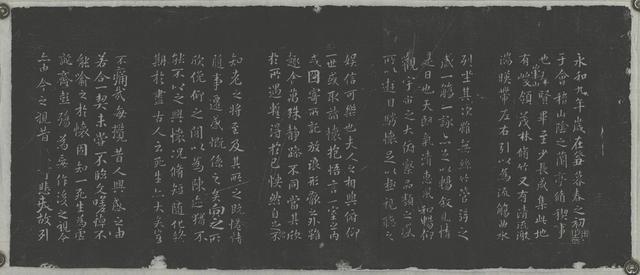 永和九年歲在癸丑暮春之初會
于會稽山陰之蘭亭脩稧事
也群賢畢至少長咸集此地
有崇山峻領茂林脩竹又有清流激
湍暎帶左右引以為流觴曲水
列坐其次雖無絲竹管弦之
盛一觴一詠亦足以暢敘幽情
是日也天朗氣清惠風和暢仰
觀宇宙之大俯察品類之盛
所以遊目騁懷足以極視聽之
娛信可樂也夫人之相與俯仰
一世或取諸懷抱悟言一室之內
或因寄所託放浪形骸之外雖
趣舍萬殊靜躁不同當其欣
於所遇蹔得於己怏然自足不
知老之將至及其所之既惓情
隨事遷感慨係之矣向之所
欣俛仰之閒以為陳迹猶不
能不以之興懷況脩短隨化終
期於盡古人云死生亦大矣豈
不痛哉每攬昔人興感之由
若合一契未嘗不臨文嗟悼不
能喻之於懷固知一死生為虛
誕齊彭殤為妄作後之視今
亦由今之視昔悲夫故列